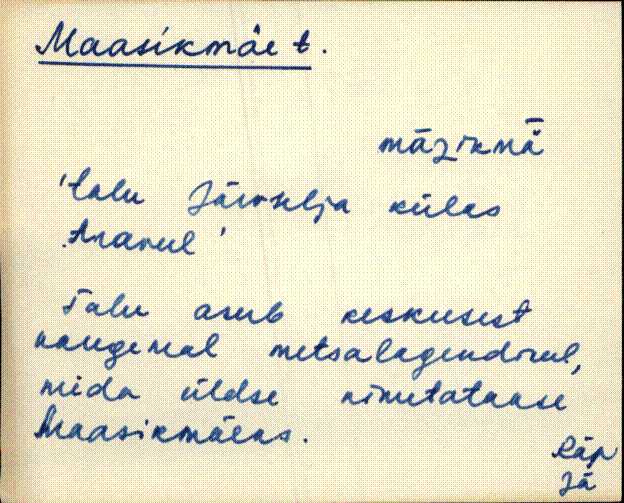 Maasikmäe t.
mäzikmǟ
'talu Järvselja külas
Aravul'
Talu asub keskusest
kaugemal metsalagendikul,
mida üldse nimetatakse
Maasikmäeks.
Räp
Jä